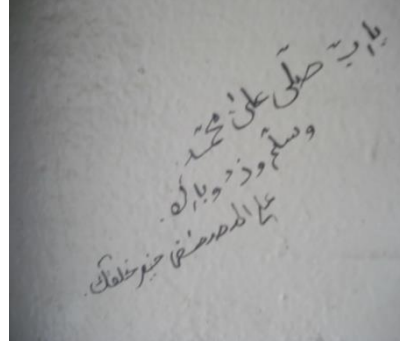 يارب صلّى على محمّد
وسلّم وذد وبارك.
على المصطفى خير خلقك.